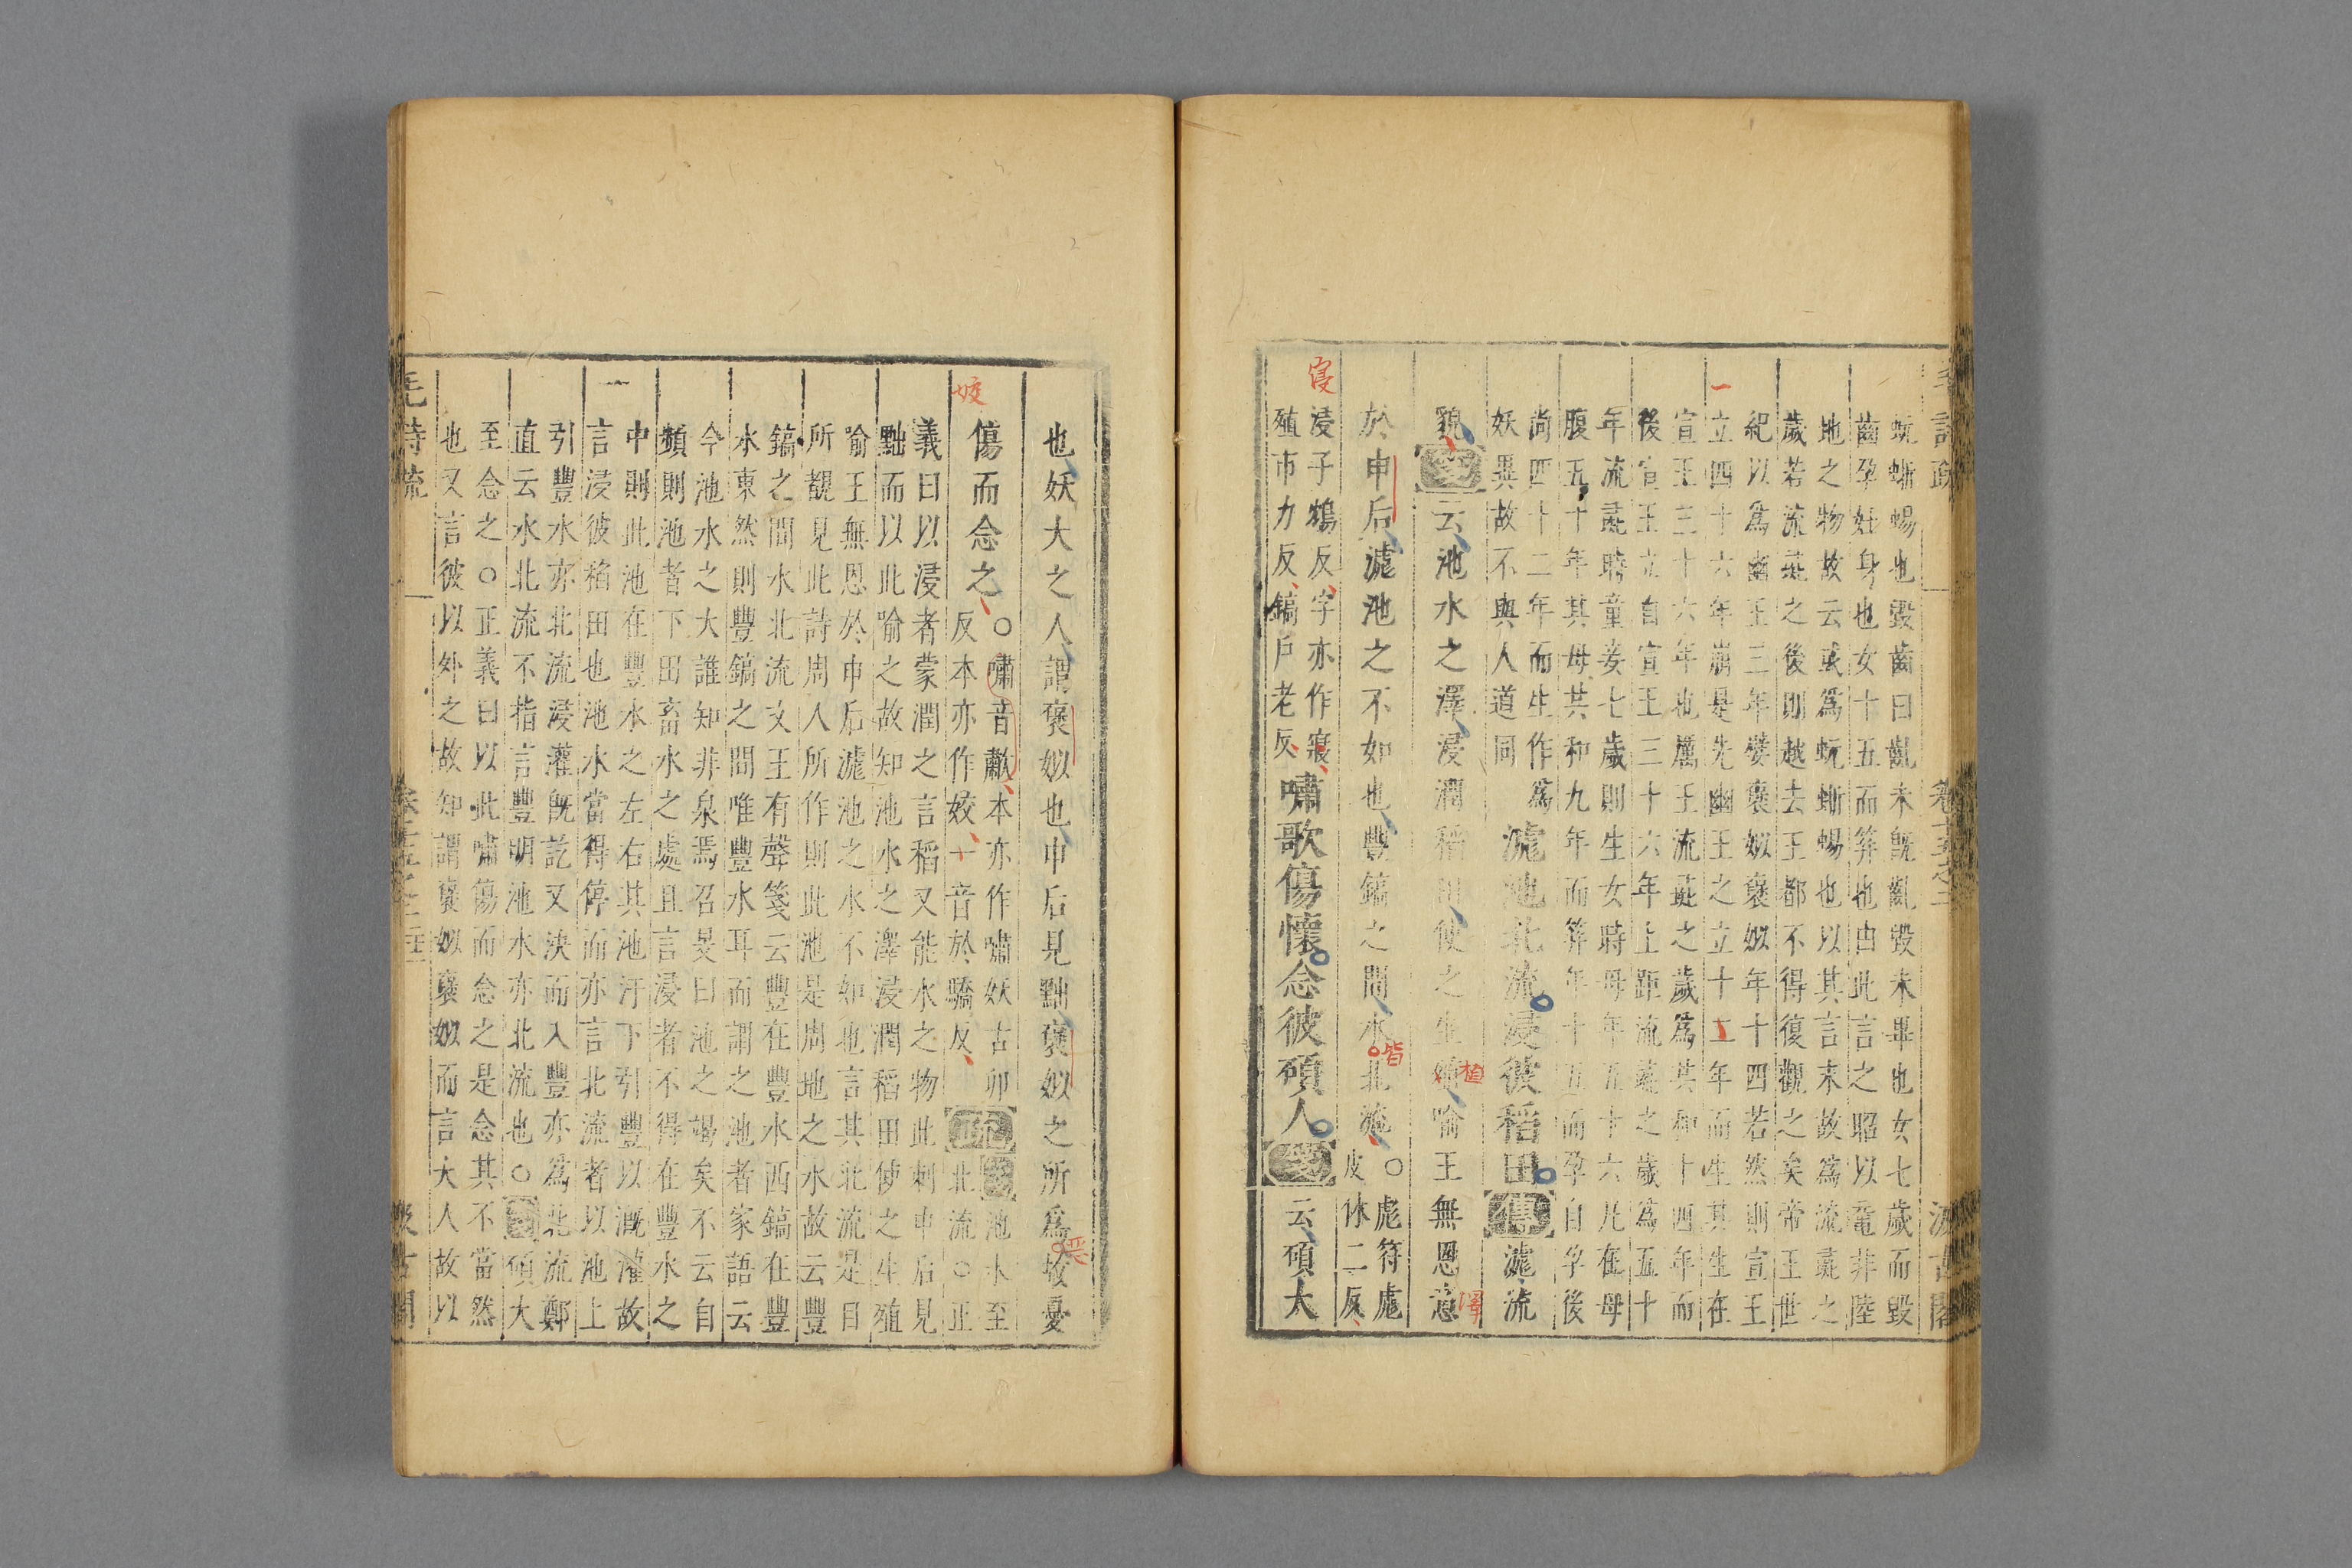 蚖蜥蜴也毀齒曰齓未旣齓毀未畢也女七歲而毀
齒孕妊身也女十五而筓也由此言之昭以黿非陸
地之物故云或爲蚖蜥蜴也以其言未故爲流彘之
歲若流彘之後則越去王都不得復觀之矣帝王世
紀以爲幽王三年嬖襃姒襃姒年十四若然則宣王
立四十六年崩是先幽王之立十二年而生其生在
宣王三十六年也厲王流彘之歲爲共和十四年而
後宣王立自宣王三十六年上距流彘之歲爲五十
年流彘時童妾七歲則生女時母年五十六凡在母
腹五十年其母共和九年而筓年十五而孕自孕後
尚四十二年而生作爲
妖異故不與人道同
滮池北流浸彼稻田傳滮流
貌箋云池水之澤浸潤稻田使之生殖喻王無恩意
植
澤
於申后滮池之不如也豐鎬之間水北流
皆
○滮符彪
皮休二反
浸子鴆反字亦作寖
殖市力反鎬戶老反
寖
嘯歌傷懷念彼碩人箋云碩大
也妖大之人謂襃姒也申后見黜襃姒之所爲故憂
傷而念之
○嘯音歗本亦作嘯妖古卯
反本亦作姣一音於驕反
姣
疏池水至
正北流○正
義曰以浸者蒙潤之言稻又能水之物此刺申后見
黜而以此喻之故知池水之澤浸潤稻田使之生殖
喻王無恩於申后滮池之水不如也言其北流是目
所覩見此詩周人所作則此池是周地之水故云豐
鎬之間水北流文王有聲箋云豐在豐水西鎬在豐
水東然則豐鎬之間唯豐水耳而謂之池者家語云
今池水之大誰知非泉焉召旻曰池之竭矣不云自
頻則池者下田畜水之處且言浸者不得在豐水之
中則此池在豐水之左右其池汙下引豐以溉灌故
言浸彼稻田也池水當得停而亦言北流者以池上
引豐水亦北流浸灌旣訖又決而入豐亦爲北流鄭
直云水北流不指言豐明池水亦北流也○箋碩大
至念之○正義曰以此嘯傷而念之是念其不當然
也又言彼以外之故知謂襃姒襃姒而言大人故以
毛詩疏
汲古閣